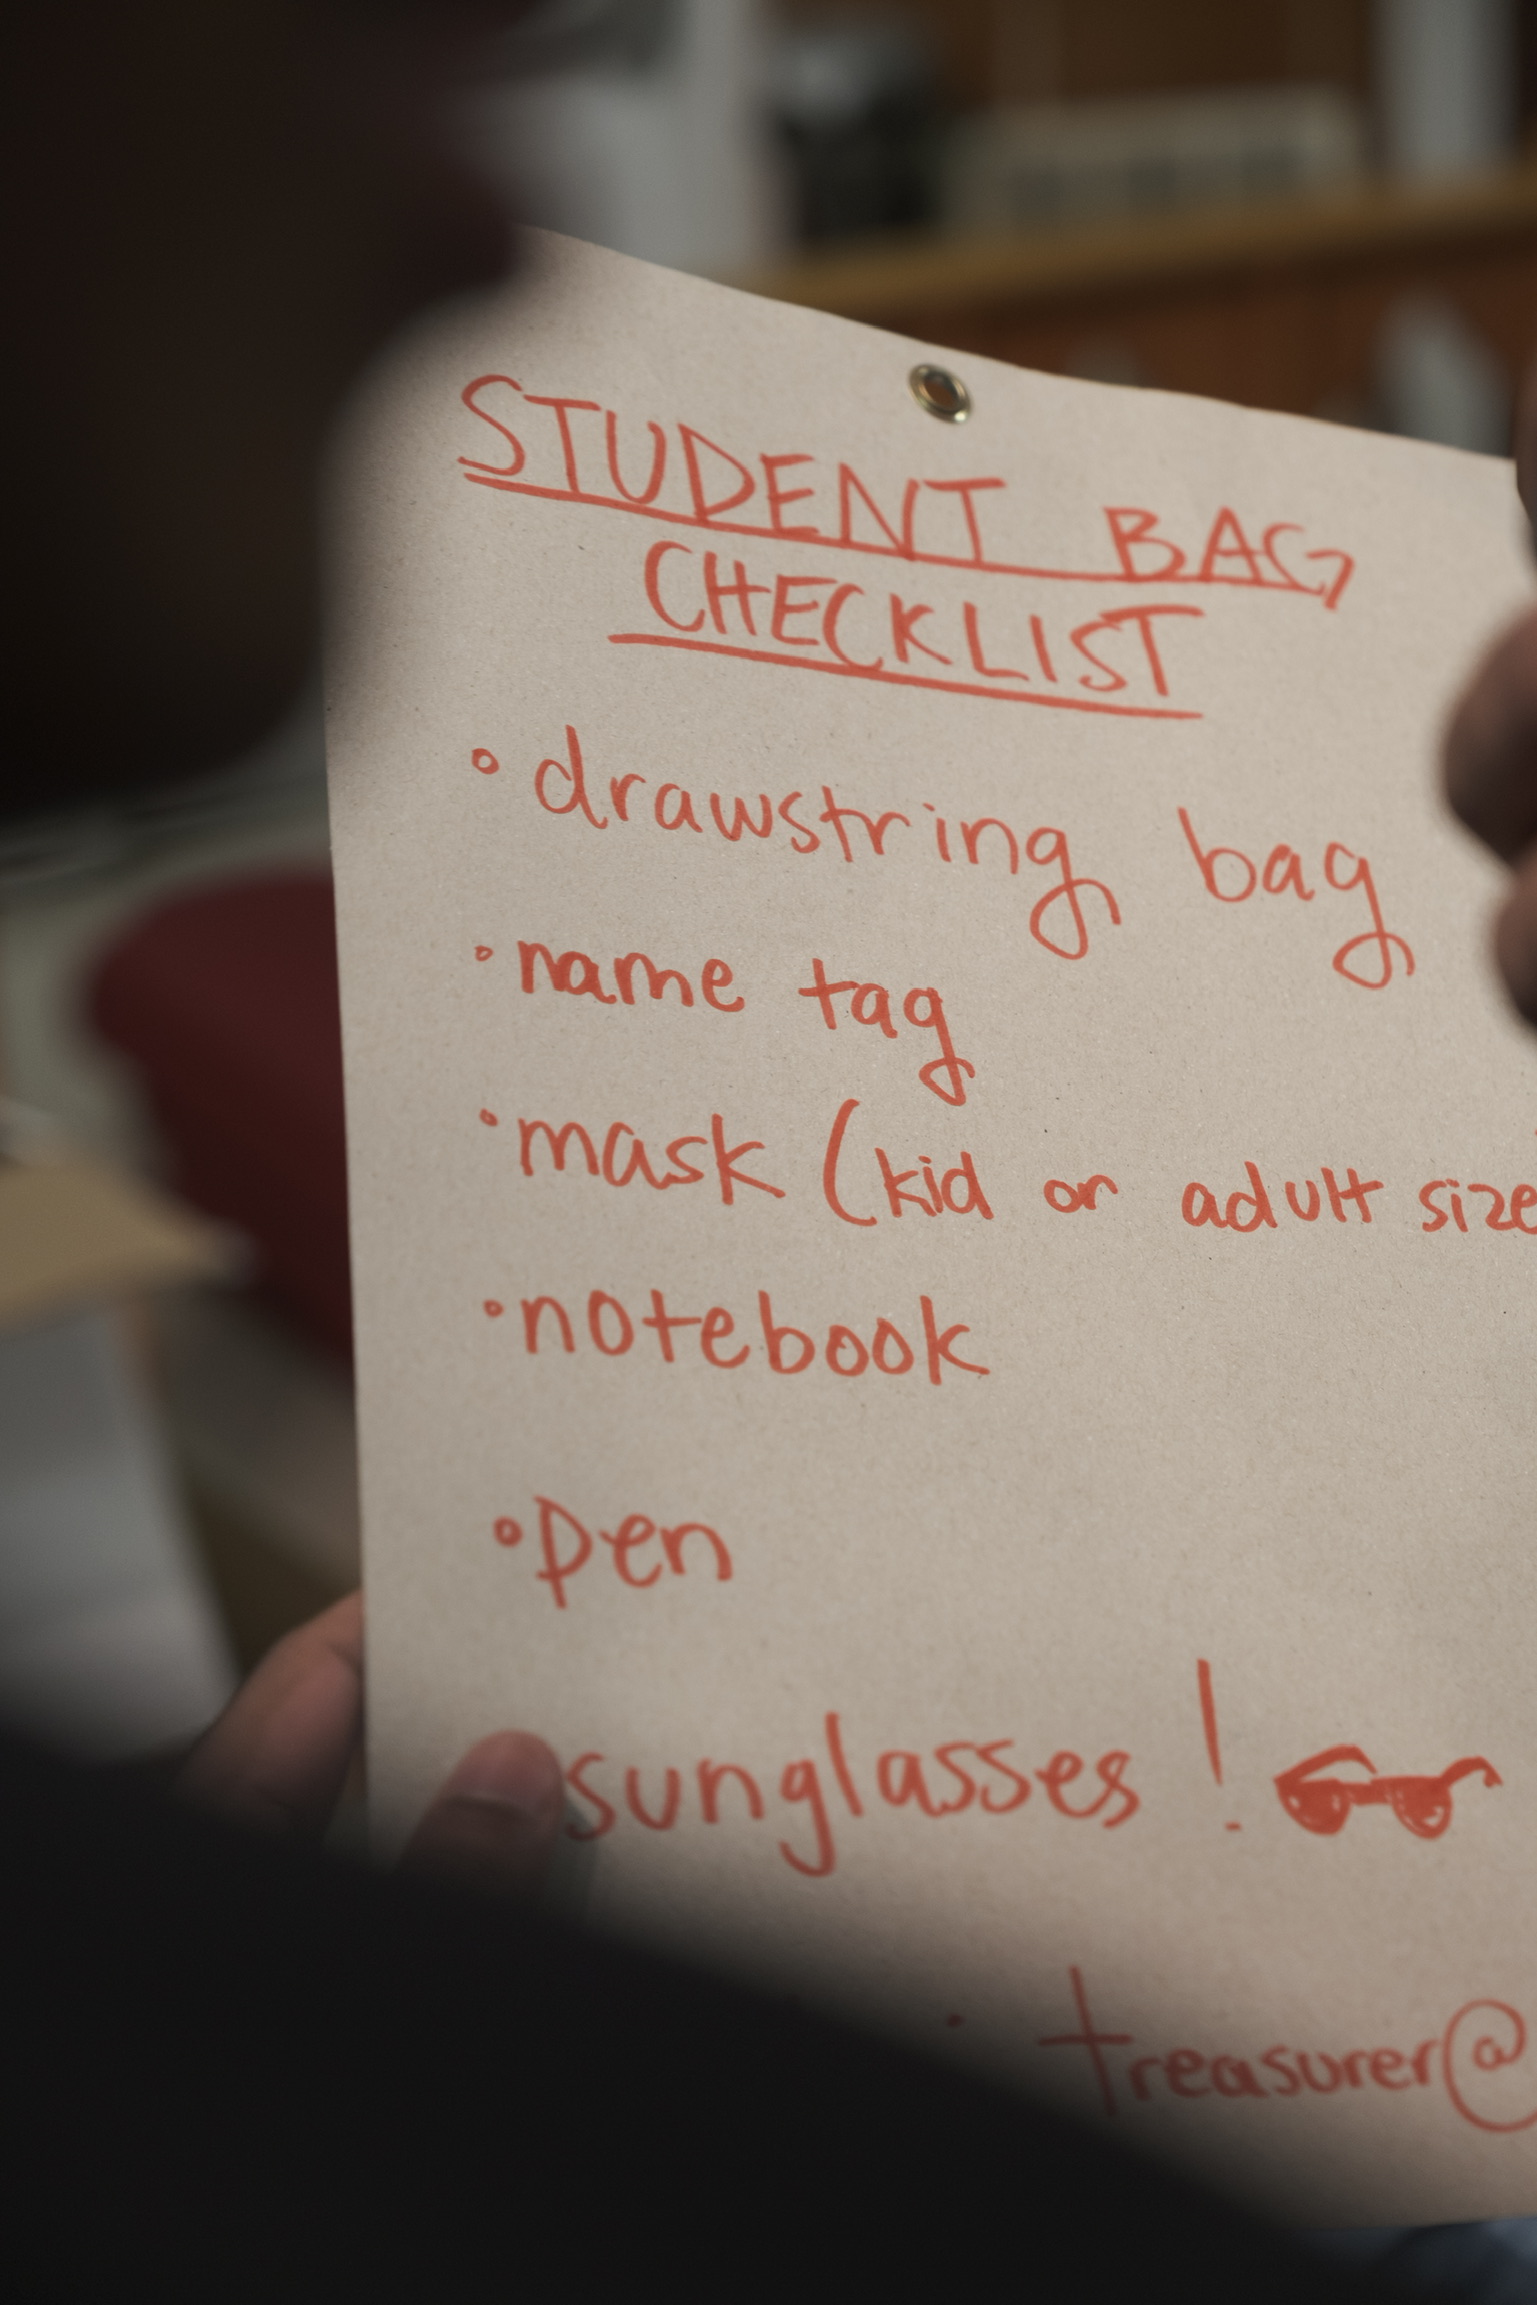 STUDENT BAG
CHECKLIST
• drawstring bag
• name tag
• mask (kid or adult size
• notebook
• pen
sunglasses!
treasurer@